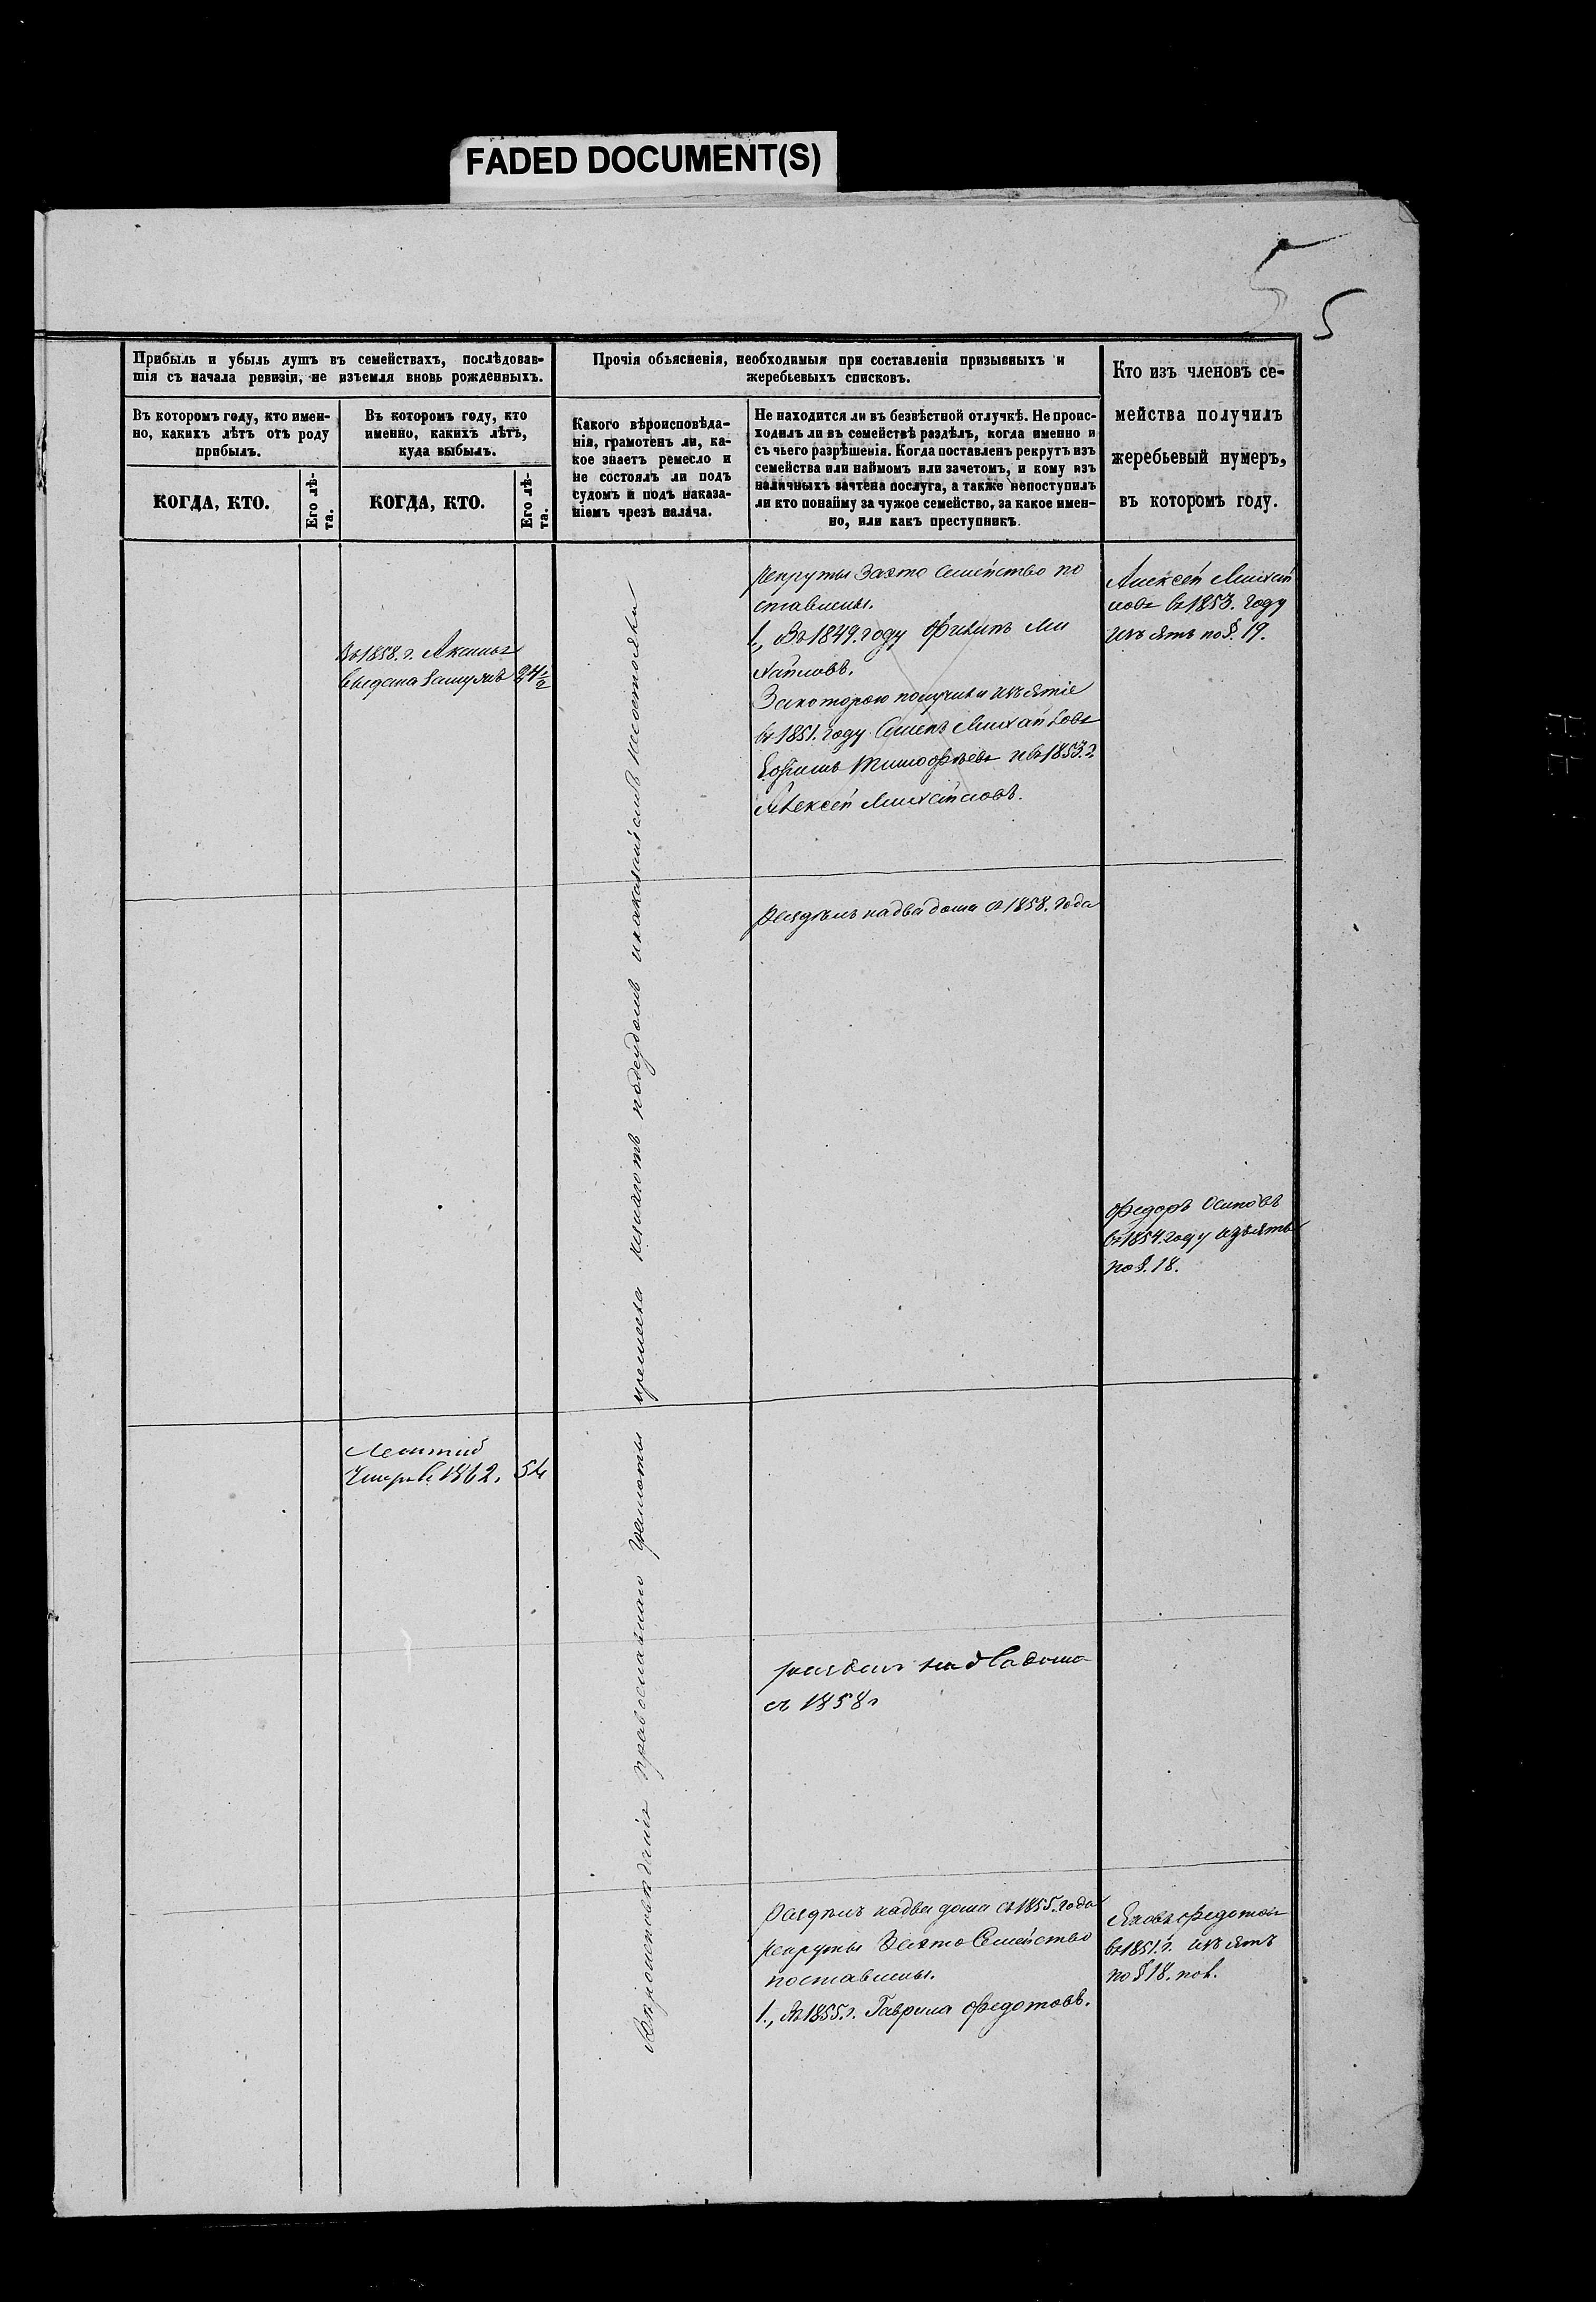 FADED DOCUMENT(S)
5
5
Прибыль и убыль душъ въ семействахъ, послѣдовав-
шія съ начала ревизіи, не изъемля вновь рожденныхъ.
Въ которомъ году, кто имен-
но, какихъ лѣтъ отъ роду
прибылъ.
Въ которомъ году, кто
именно, какихъ лѣтъ,
куда выбылъ.
КОГДА, КТО.
Его лѣ-
та.
КОГДА, КТО.
Его лѣ-
та.
Прочія объясненія, необходимыя при составленіи призывныхъ и
жеребьевыхъ списковъ.
Какого вѣроисповѣда-
нія, грамотенъ ли, ка-
кое знаетъ ремесло и
не состоялъ ли подъ
судомъ и подъ наказа-
ніемъ чрезъ палача.
Не находится ли въ безвѣстной отлучкѣ. Не проис-
ходилъ ли въ семействѣ раздѣлъ, когда именно и
съ чьего разрѣшенія. Когда поставленъ рекрутъ изъ
семейства или наймомъ или зачетомъ, и кому изъ
наличныхъ зачтена послуга, а также непоступилъ
ли кто понайму за чужое семейство, за какое имен-
но, или какъ преступникъ.
Кто изъ членовъ се-
мейства получилъ
жеребьевый нумеръ,
въ которомъ году.
Въ 1858. г. Аксинья
выдана замужъ 24½
рекруты За это Семейство по
ставлены.
1., Въ 1849. году Филипъ Ми
хайловъ.
За которою получили изъятіе
въ 1851. году Семенъ Михайловъ
Ефимъ Тимофѣевъ и въ 1853. г
Алексѣй Михайловъ.
Алексѣй Михай
ловъ въ 1853. году
изъятъ по §. 19.
Раздѣлъ на два дома съ 1858. года
Федоръ Осиповъ
въ 1854. году изъятъ
по §. 18.
умеръ въ 1862. 54
раздѣлъ на два дома
съ 1858 г
Вѣроисповѣданія православнаго грамоты и ремесла незнаютъ подсудомъ и наказаніемъ несостояли
Раздѣлъ на два дома съ 1855. года
рекруты За это Семейство
поставлены.
1., Въ 1855. г. Гаврила Федотовъ.
Яковъ Федотовъ
въ 1851. г. изъятъ
по § 18. пол.